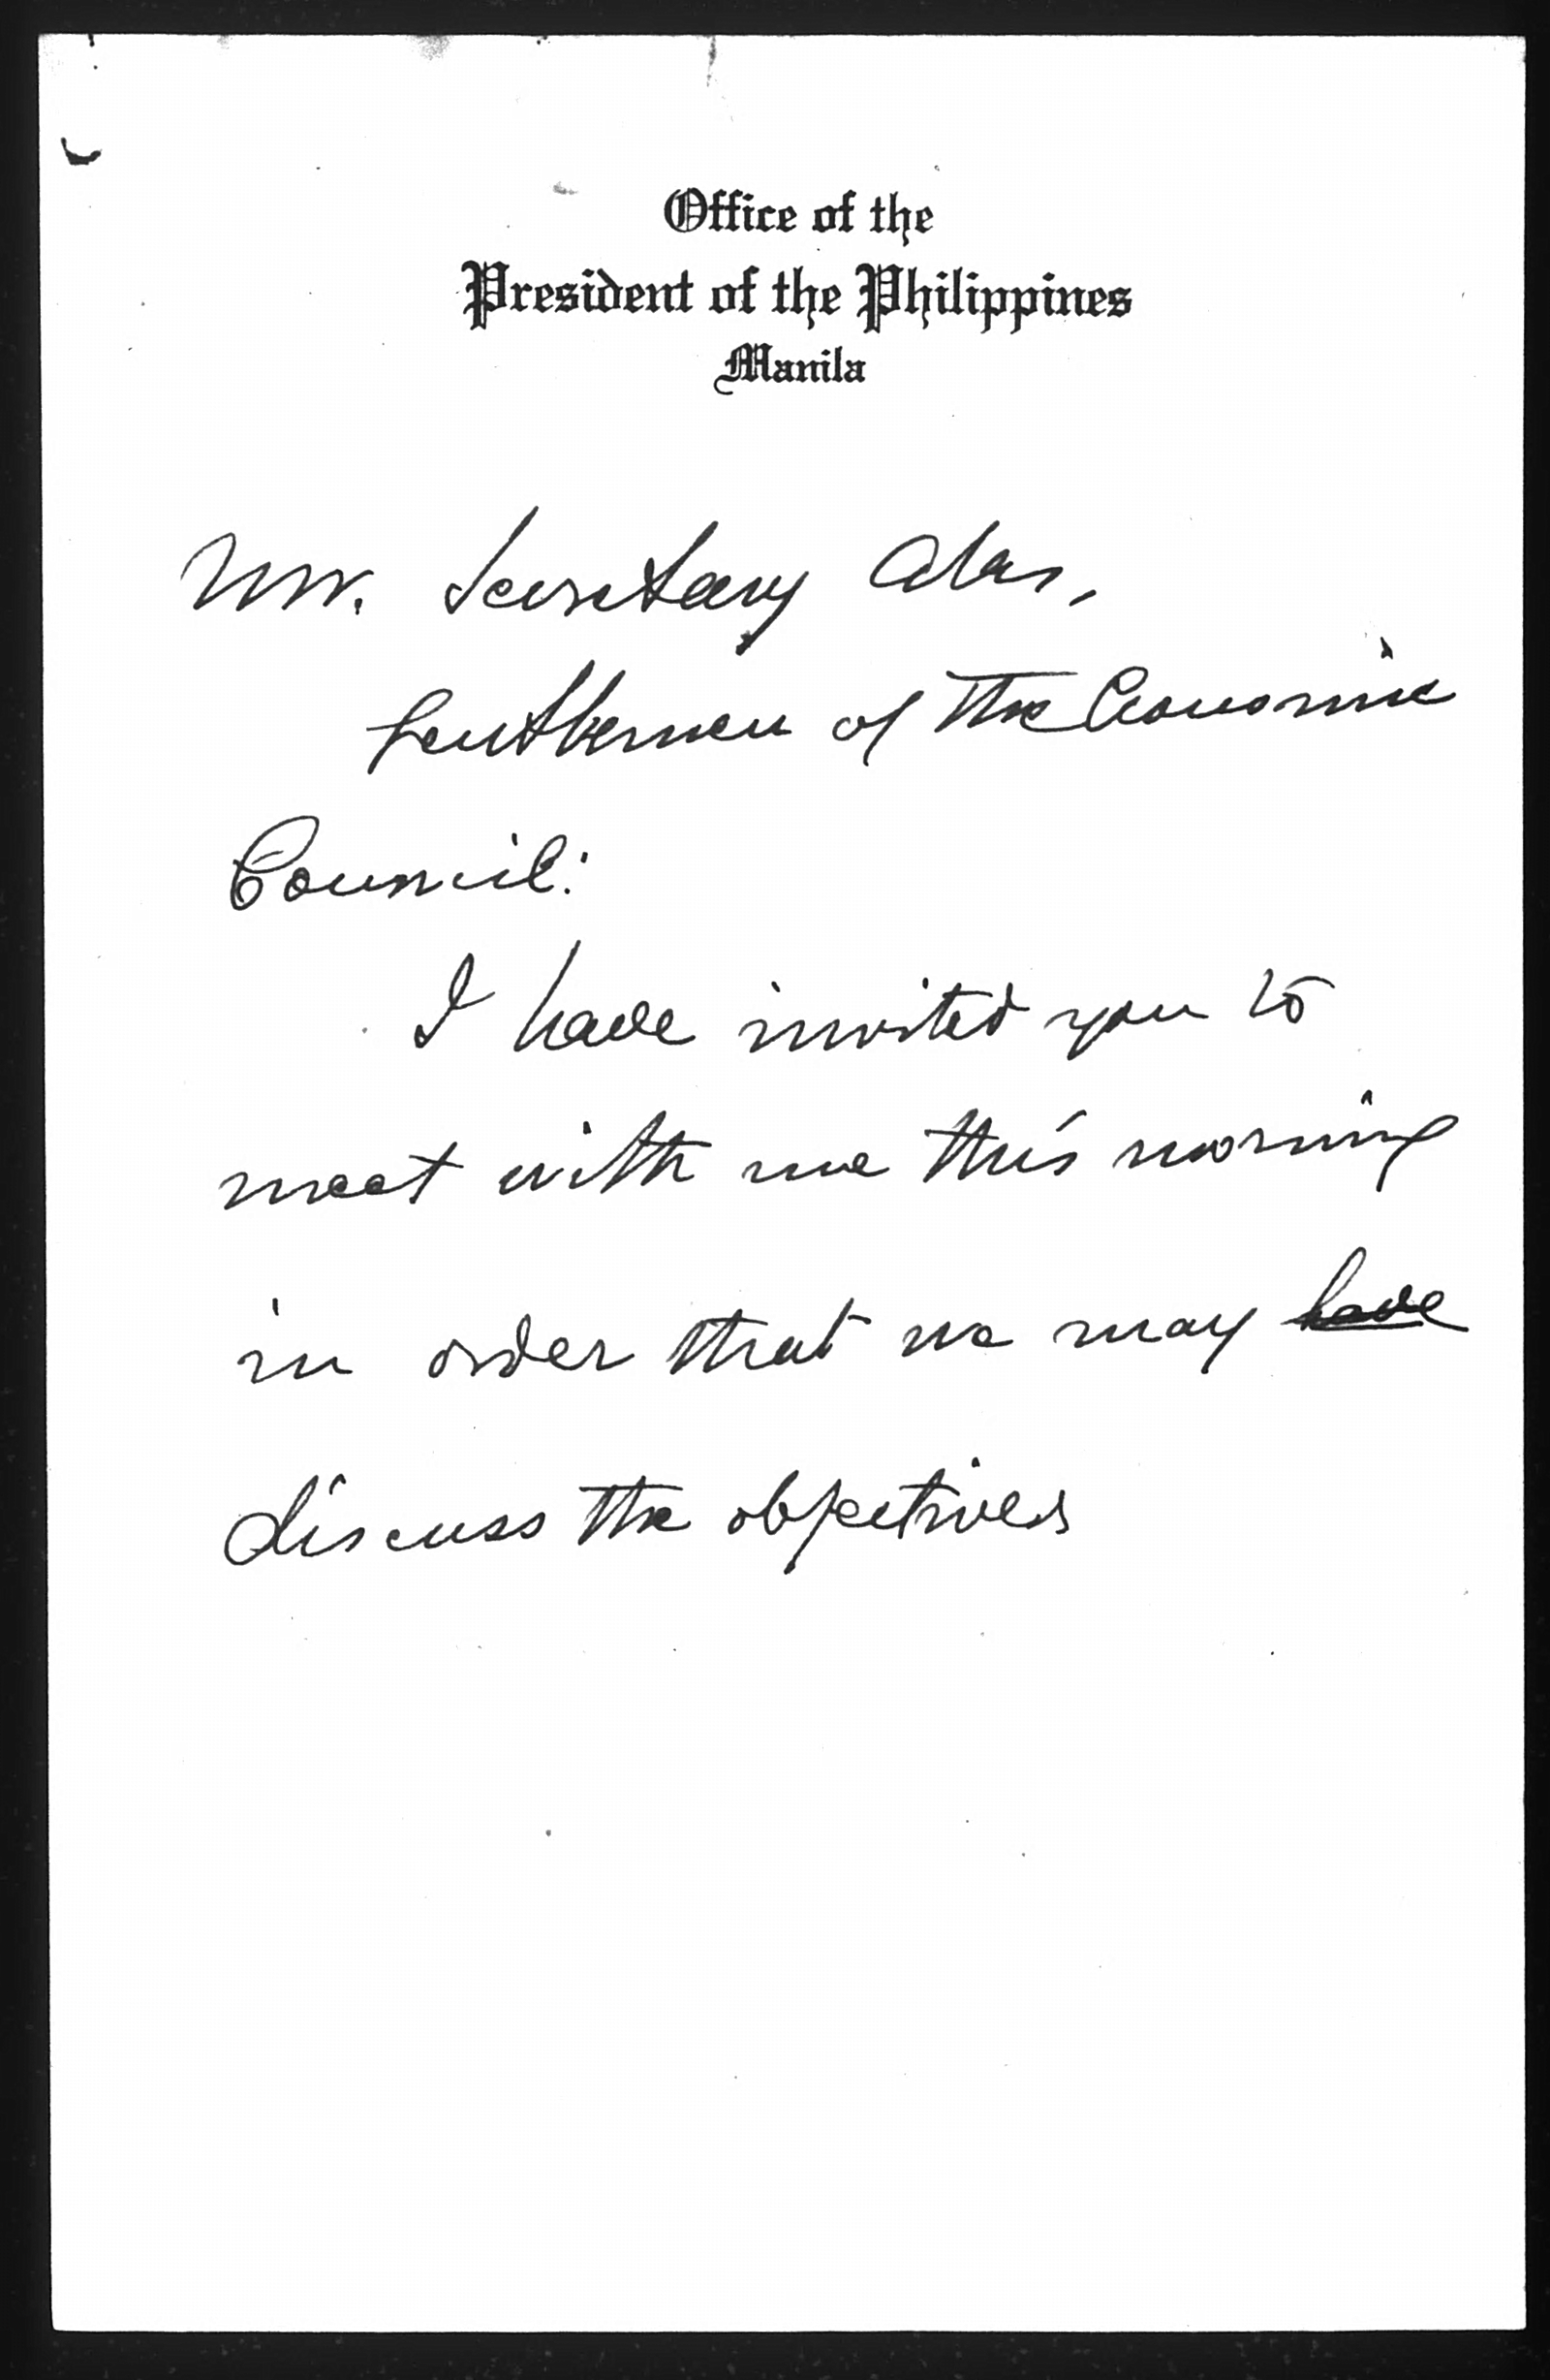 Office of the
President of the Philippines
Manila
Mr. Secretary Alas,
Gentlemen of the Economic
Council:
I have invited you to
meet with me this morning
in order that we may have
discuss the objectives